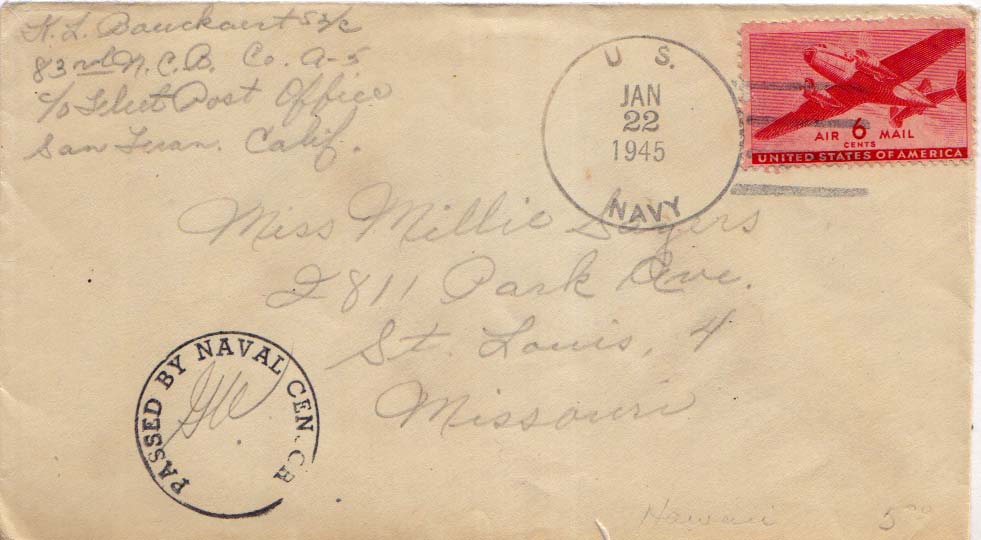 83rd N.C.B. Co. A-5
c/o Fleet Post Office
San Fran. Calif.
U.S.
JAN
22
1945
NAVY
AIR 6 MAIL
CENTS
UNITED STATES OF AMERICA
Miss Millie Sayers
2811 Park Ave.
St. Louis, 4
Missouri
PASSED BY NAVAL CEN
Hawaii 5.00